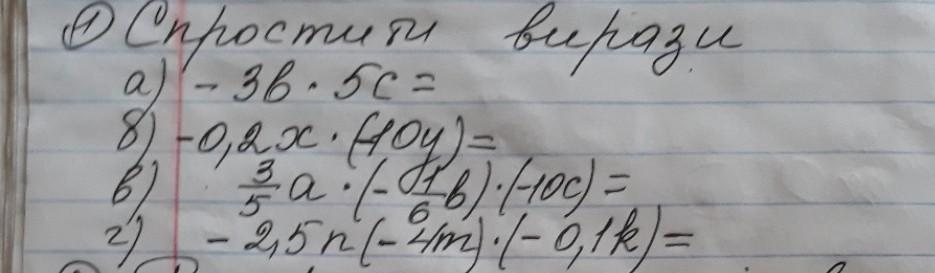 ① Спростити вирази
а) - 3в · 5с =
б) -0,2х · (-10у) =
в) 3/5 а · (- 1/6 в) · (-10с) =
г) - 2,5n (- 4m) · (- 0,1k) =